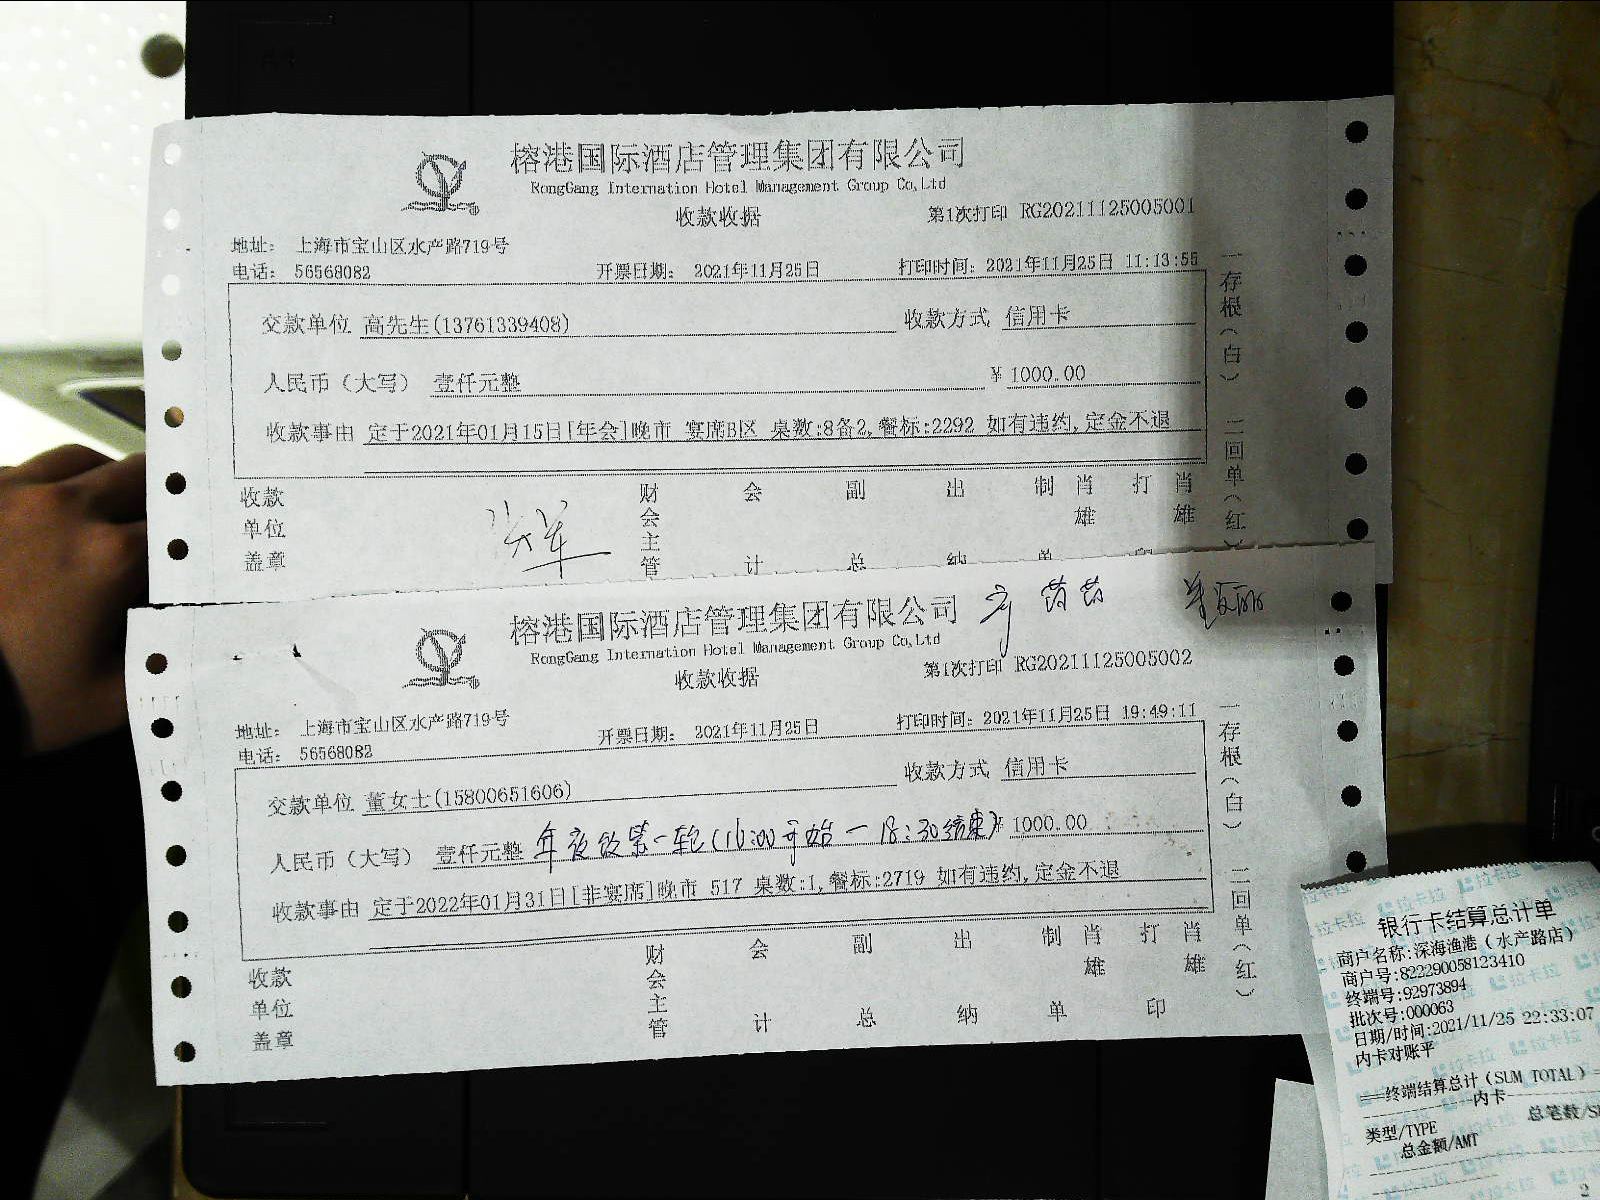 榕港国际酒店管理集团有限公司
RongGang Internation Hotel Management Group Co,Ltd
收款收据
第1次打印 RG20211125005001
地址: 上海市宝山区水产路719号
电话: 56568082
开票日期: 2021年11月25日
打印时间: 2021年11月25日 11:13:55
交款单位 高先生(13761339408)
收款方式 信用卡
人民币（大写） 壹仟元整
¥ 1000.00
收款事由 定于2021年01月15日[年会]晚市 宴席B区 桌数:8备2,餐标:2292 如有违约,定金不退
一存根（白）
二回单（红）
收款单位盖章
财会主管
会计
副总
出纳
制单
肖雄
打印
肖雄
榕港国际酒店管理集团有限公司
RongGang Internation Hotel Management Group Co,Ltd
收款收据
第1次打印 RG20211125005002
地址: 上海市宝山区水产路719号
电话: 56568082
开票日期: 2021年11月25日
打印时间: 2021年11月25日 19:49:11
交款单位 董女士(15800651606)
收款方式 信用卡
人民币（大写） 壹仟元整 年夜饭第一轮(16:00开始一18:30结束)
¥ 1000.00
收款事由 定于2022年01月31日[非宴席]晚市 517 桌数:1,餐标:2719 如有违约,定金不退
一存根（白）
二回单（红）
收款单位盖章
财会主管
会计
副总
出纳
制单
肖雄
打印
肖雄
银行卡结算总计单
商户名称:深海渔港（水产路店）
商户号:822290058123410
终端号:92973894
批次号:000063
日期/时间:2021/11/25 22:33:07
内卡对账平
===终端结算总计（SUM TOTAL）=
内卡
类型/TYPE
总笔数/S
总金额/AMT
2
拉卡拉